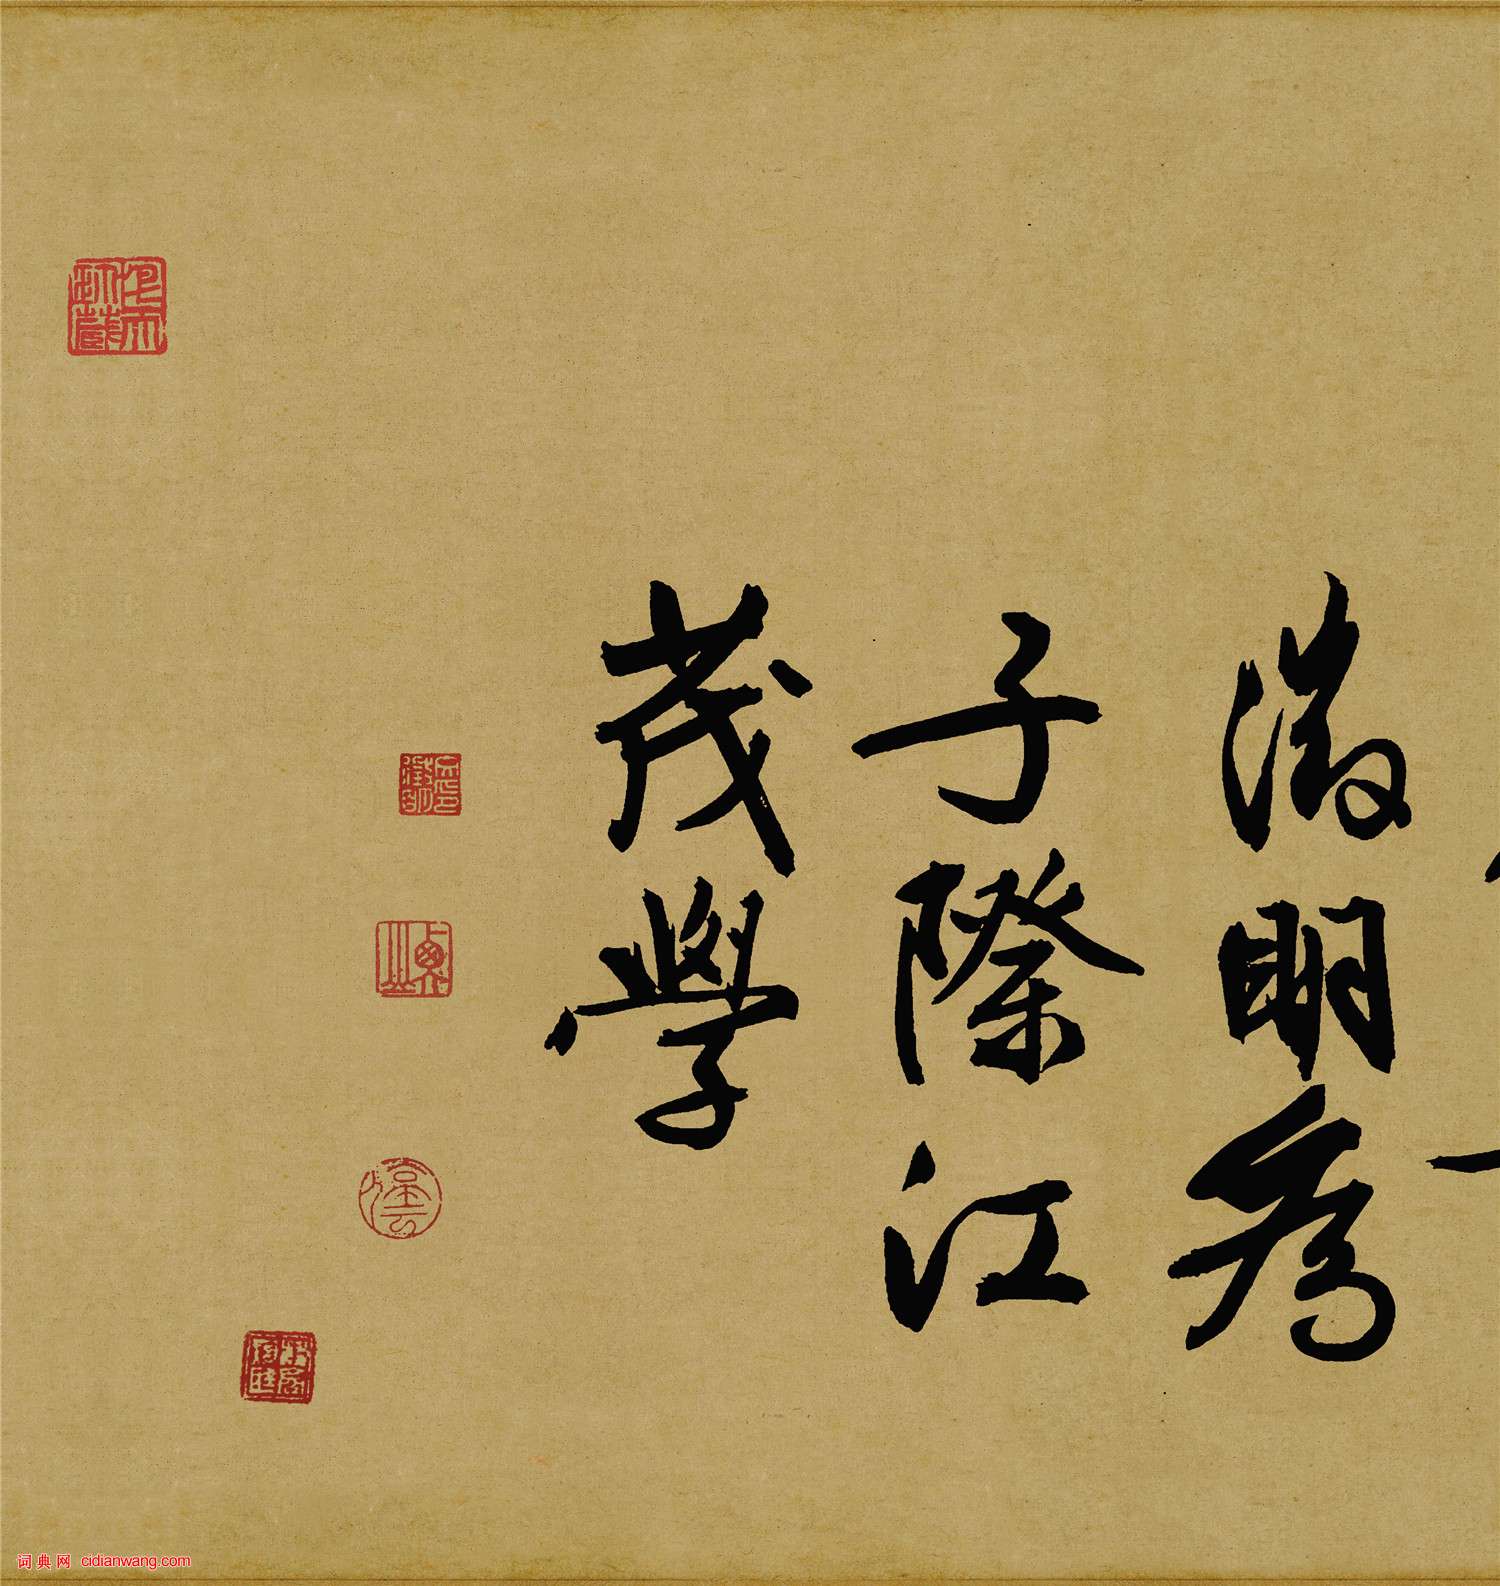 徵明為
子際江
茂學
停雲
詞典网 cidianwang.com